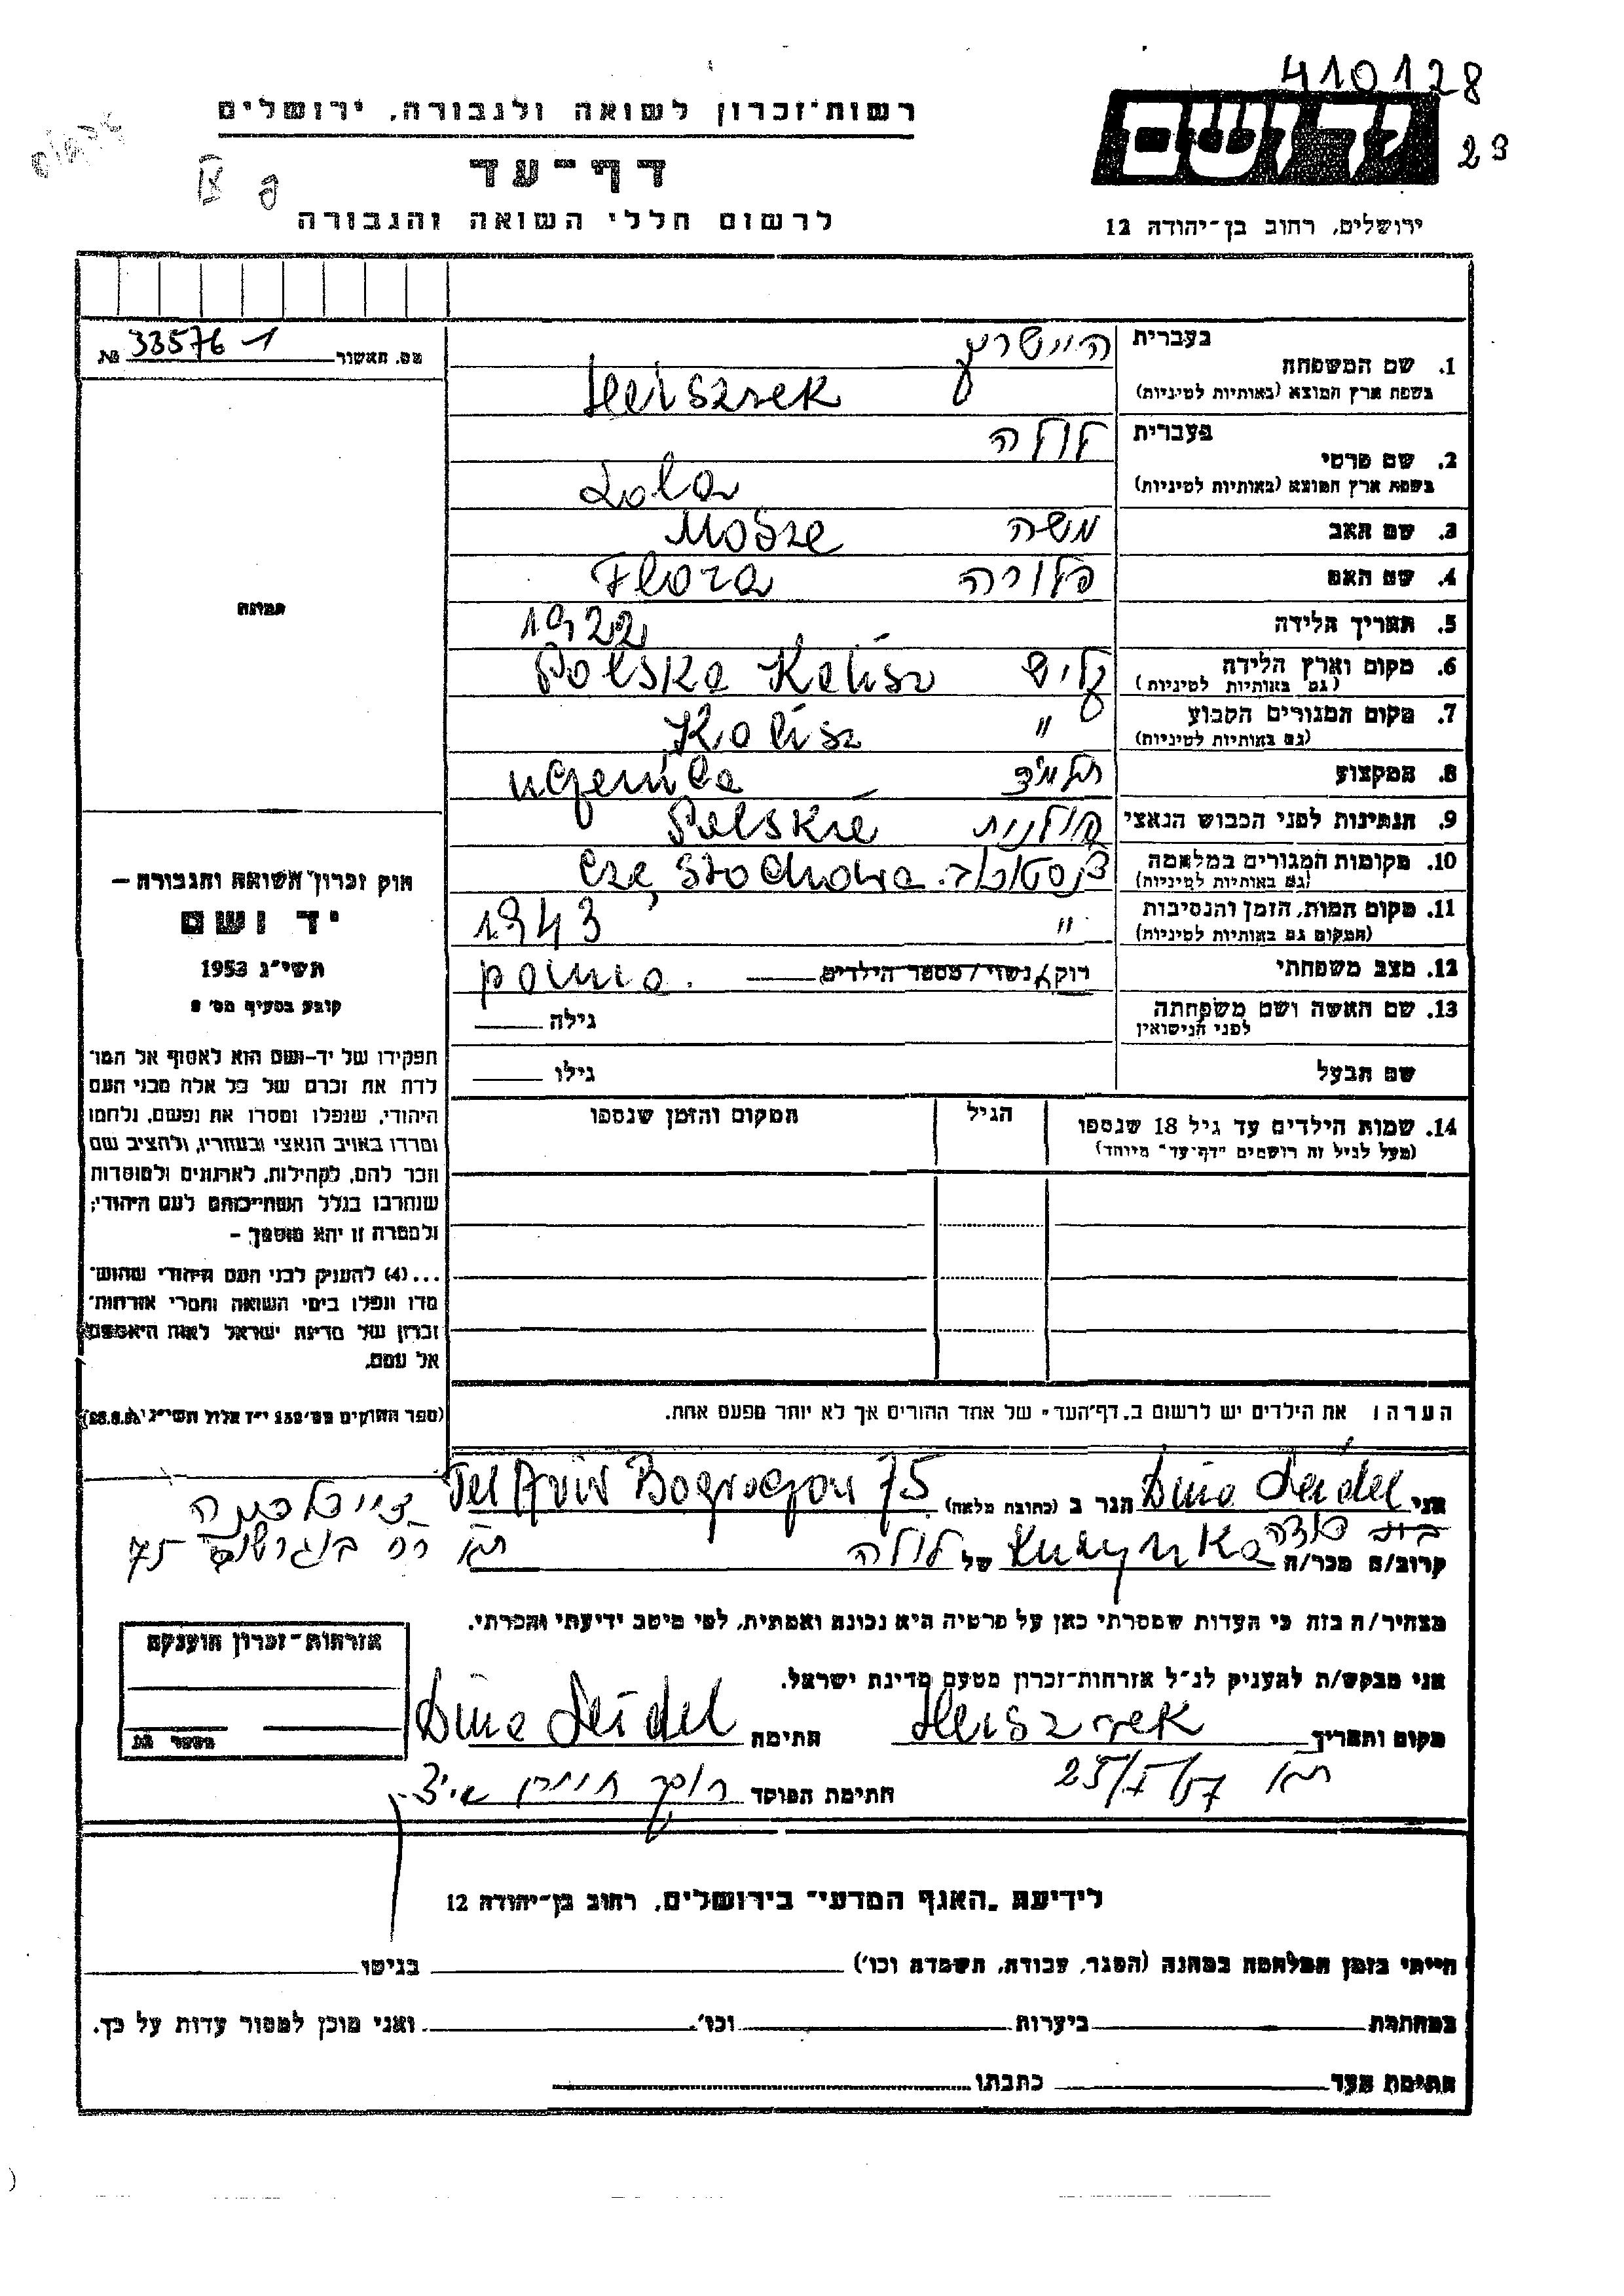 410128
23
יד ושם
ירושלים, רחוב בן-יהודה 12
רשות-זכרון לשואה ולגבורה, ירושלים
דף-עד
לרשום חללי השואה והגבורה
מס. האשור 33576-1 .מג
1. שם המשפחה בעברית היישריק
בשפת ארץ המוצא (באותיות לטיניות) Heiszrek
2. שם פרטי בעברית לולה
בשפת ארץ המוצא (באותיות לטיניות) Lola
3. שם האב משה Mosze
4. שם האם פלורה Flora
5. תאריך הלידה 1922
6. מקום וארץ הלידה (גם באותיות לטיניות) קליש Polska Kalisz
7. מקום המגורים הקבוע (גם באותיות לטיניות) " Kalisz
8. המקצוע תלמיד
9. הנתינות לפני הכבוש הנאצי פולנית Polskie
10. מקומות המגורים במלחמה (גם באותיות לטיניות) Częstochowa
11. מקום המות, הזמן והנסיבות (המקום גם באותיות לטיניות) " 1943
12. מצב משפחתי רוק/ נשוי / מספר הילדים panna.
13. שם האשה ושם משפחתה לפני הנישואין גילה
שם הבעל גילו
14. שמות הילדים עד גיל 18 שנספו הגיל המקום והזמן שנספו
(מעל לגיל זה רושמים "דף-עד" מיוחד)
תמונה
חוק זכרון השואה והגבורה –
יד ושם
תשי"ג 1953
קובע בסעיף מס' 2
תפקידו של יד-ושם הוא לאסוף אל המו-
לדת את זכרם של כל אלה מבני העם
היהודי, שנפלו ומסרו את נפשם, נלחמו
ומרדו באויב הנאצי ובעוזריו, ולהציב שם
וזכר להם, לקהילות, לארגונים ולמוסדות
שנחרבו בגלל השתייכותם לעם היהודי;
ולמטרה זו יהא מוסמך –
...(4) להעניק לבני העם היהודי שהוש-
מדו ונפלו בימי השואה והמרי אזרחות-
זכרון של מדינת ישראל לאות היאספם
אל עמם.
(ספר החוקים מס' 132 י"ז אלול תשי"ג
הערה: את הילדים יש לרשום ב"דף-העד" של אחד ההורים אך לא יותר מפעם אחת.
אני Dina Seidel הגר ב (כתובת מלאה) Tel Aviv 75
קרוב/ה מכר/ה Kuzynka של לולה
75
מצהיר/ה בזה כי העדות שמסרתי כאן על פרטיה היא נכונה ואמתית, לפי מיטב ידיעתי והכרתי.
אני מבקש/ת להעניק לנ"ל אזרחות-זכרון מטעם מדינת ישראל.
אזרחות-זכרון הוענקה
מקום ותאריך Heiszrek חתימה Dina Seidel
25/I/57 חתימת הפוקד
לידיעת "האגף המדעי" בירושלים, רחוב בן-יהודה 12
הייתי בזמן המלחמה במחנה (הסגר, עבודה, השמדה וכו') בגיטו
במחתרת ביערות וכו'. ואני מוכן למסור עדות על כך.
חתימת העד כתבתו